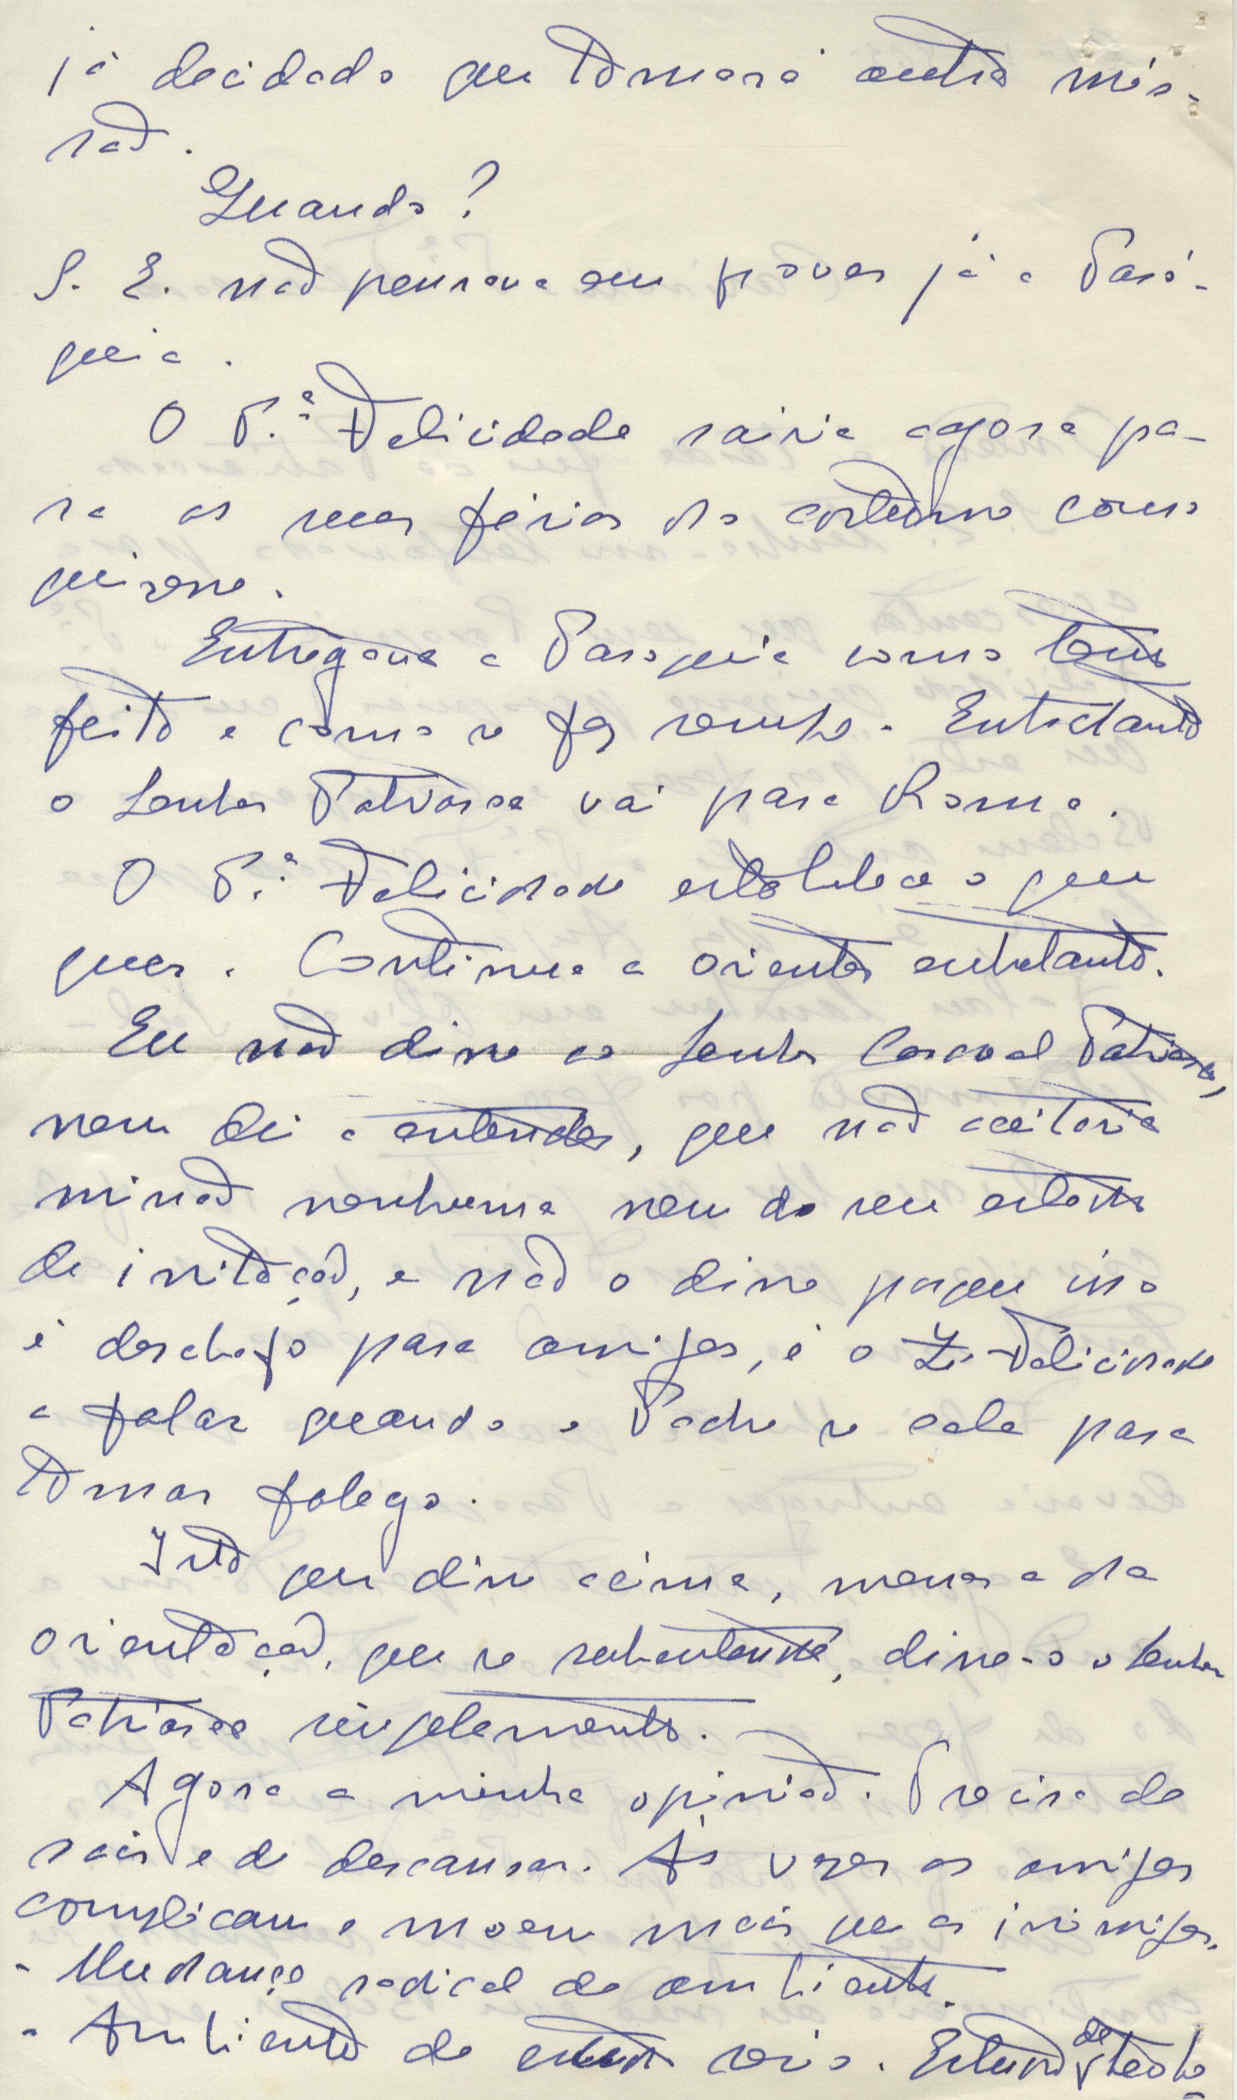 já decidido que tomará outra mis-
são.
Quando?
S. E. não pensava em prover já a Paró-
quia.
O P.e Felicidade sairia agora pa-
ra as suas férias do costume como
quisesse.
Entregava a Paroquia como tem
feito e como se fez sempre. Entretanto
o Senhor Patriarca vai para Roma.
O P.e Felicidade estabelece o que
quer. Continua a orientar entretanto.
Eu não disse ao Senhor Cardeal Patriarca,
nem dei a entender, que não aceitaria
missão nenhuma nem do seu estado
de irritação, e não o disse porque isso
é desabafo para amigos, é o Zé Felicidade
a falar quando o Padre se cala para
tomar folego.
Isto que disse acima, menos a da
orientação, que se subentende, disse-o o Senhor
Patriarca simplesmente.
Agora a minha opinião. Precisa de
sair e de descansar. Às vezes os amigos
complicam e moem mais que os inimigos.
- Mudança radical de ambiente.
- Ambiente de estudo sério. Estudo de teolo-